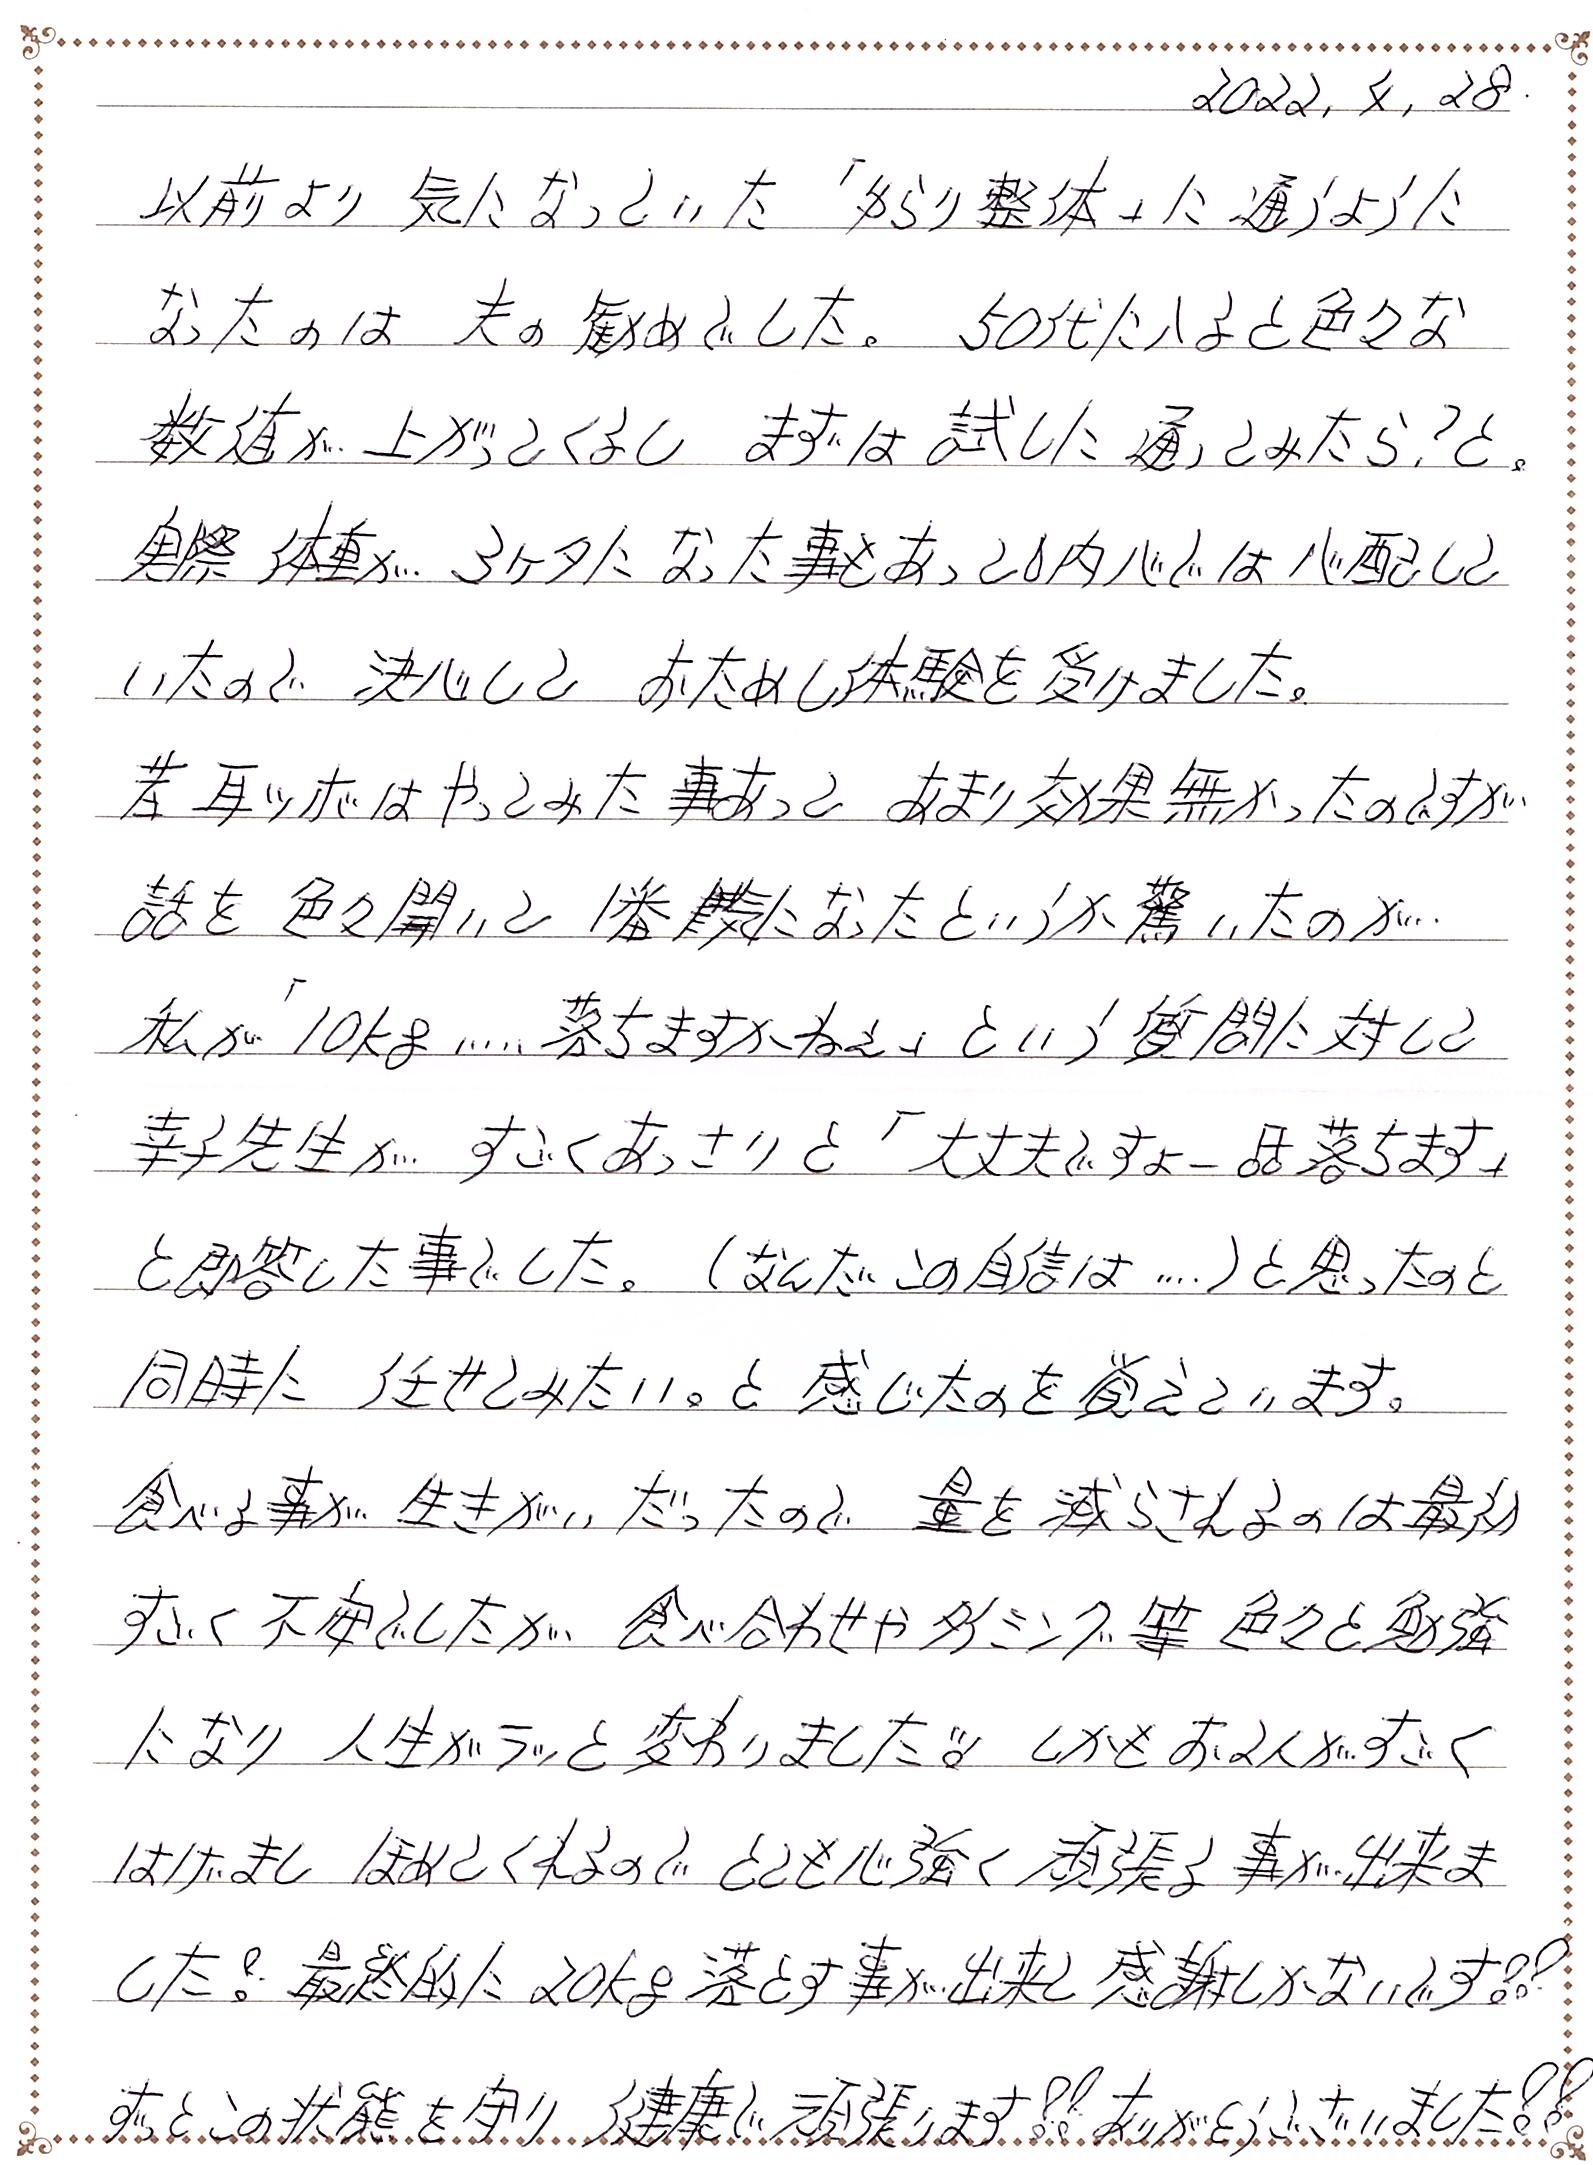 2022. 4. 28.
以前より 気になっていた「ゆらり整体」に通うように
なったのは 夫の勧めでした。 50代に入ると色々な
数値が上がってくるし まずは試しに通ってみたら?と。
実際 体重が 3ケタになった事もあって内心では心配して
いたので 決心して おためし体験を受けました。
昔耳ツボはやってみた事あって あまり効果無かったのですが
話を 色々聞いて 1番 気になったというか驚いたのが
私が「10kg.....落ちますかねえ」という質問に対して
幸子先生が すごくあっさりと「大丈夫ですよー 落ちます」
と即答した事でした。(なんだこの自信は....)と思ったのと
同時に 任せてみたい。と 感じたのを覚えています。
食べる事が 生きがいだったので 量を減らされるのは最初
すごく不安でしたが 食べ合わせやタイミング等 色々と勉強
になり 人生がラッと変わりました!! しかもお2人がすごく
はげまし ほめてくれるので とても心強く頑張る事が出来ま
した! 最終的に20kg落とす事が出来て感謝しかないです!!
ずっとこの状態を守り 健康で頑張ります!! ありがとうございました!!